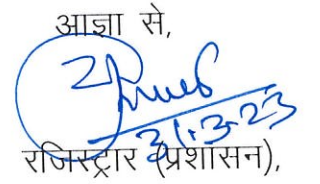 आज्ञा से,
31.3.23
रजिस्ट्रार (प्रशासन),